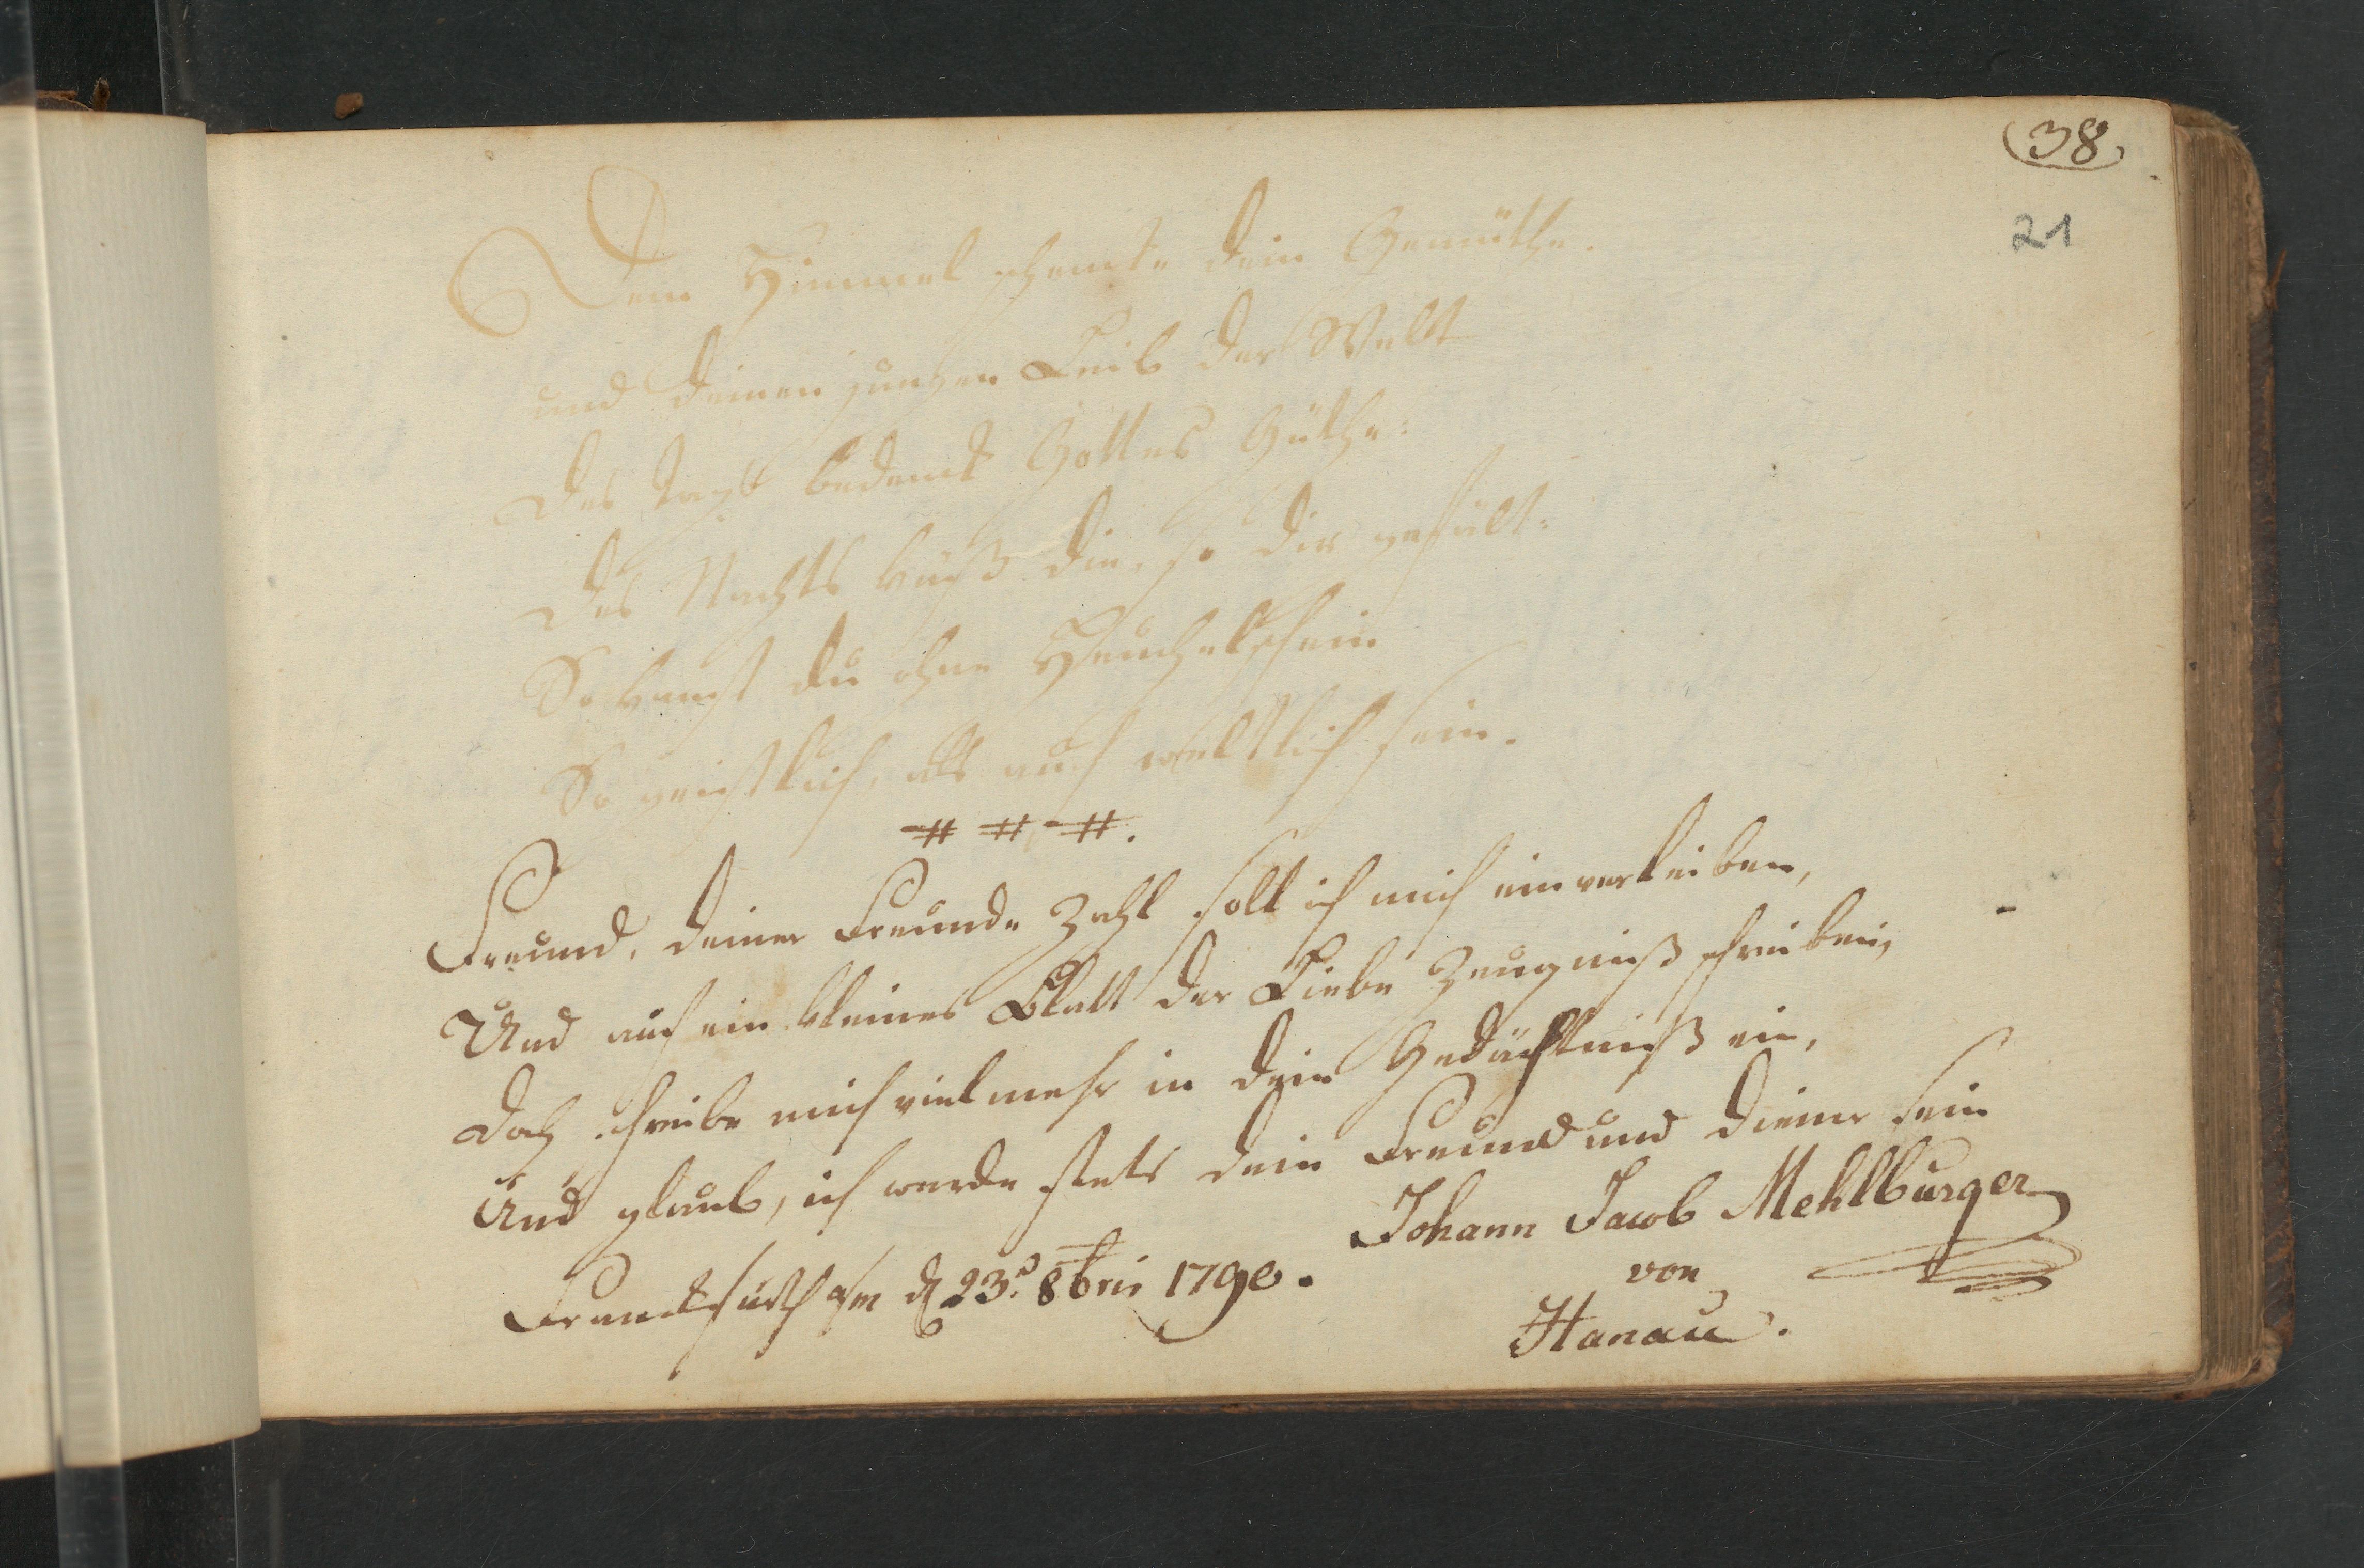 38.
21
Dem Himmel schencke dein Gemüthe.
und deinen jungen Leib der Welt
Des Tags bedenck Gottes Güthe:
Des Nachts küß die, so dir gefält:
So kanst du ohne Heuchelschein
So geistlich, als auch weltlich sein.
# # #.
Freund, deiner Freunde Zahl soll ich mich einverleiben,
Und auf ein kleines Blatt der Liebe Zeugniß schreiben,
Doch schreibe mich vielmehr in dein Gedächtniß ein,
Und glaub, ich werde stets dein Freund und Diener sein
Johann Jacob Mehlburger
Franckfurth a/m d 23.d 8bris 1790.
von
Hanau.